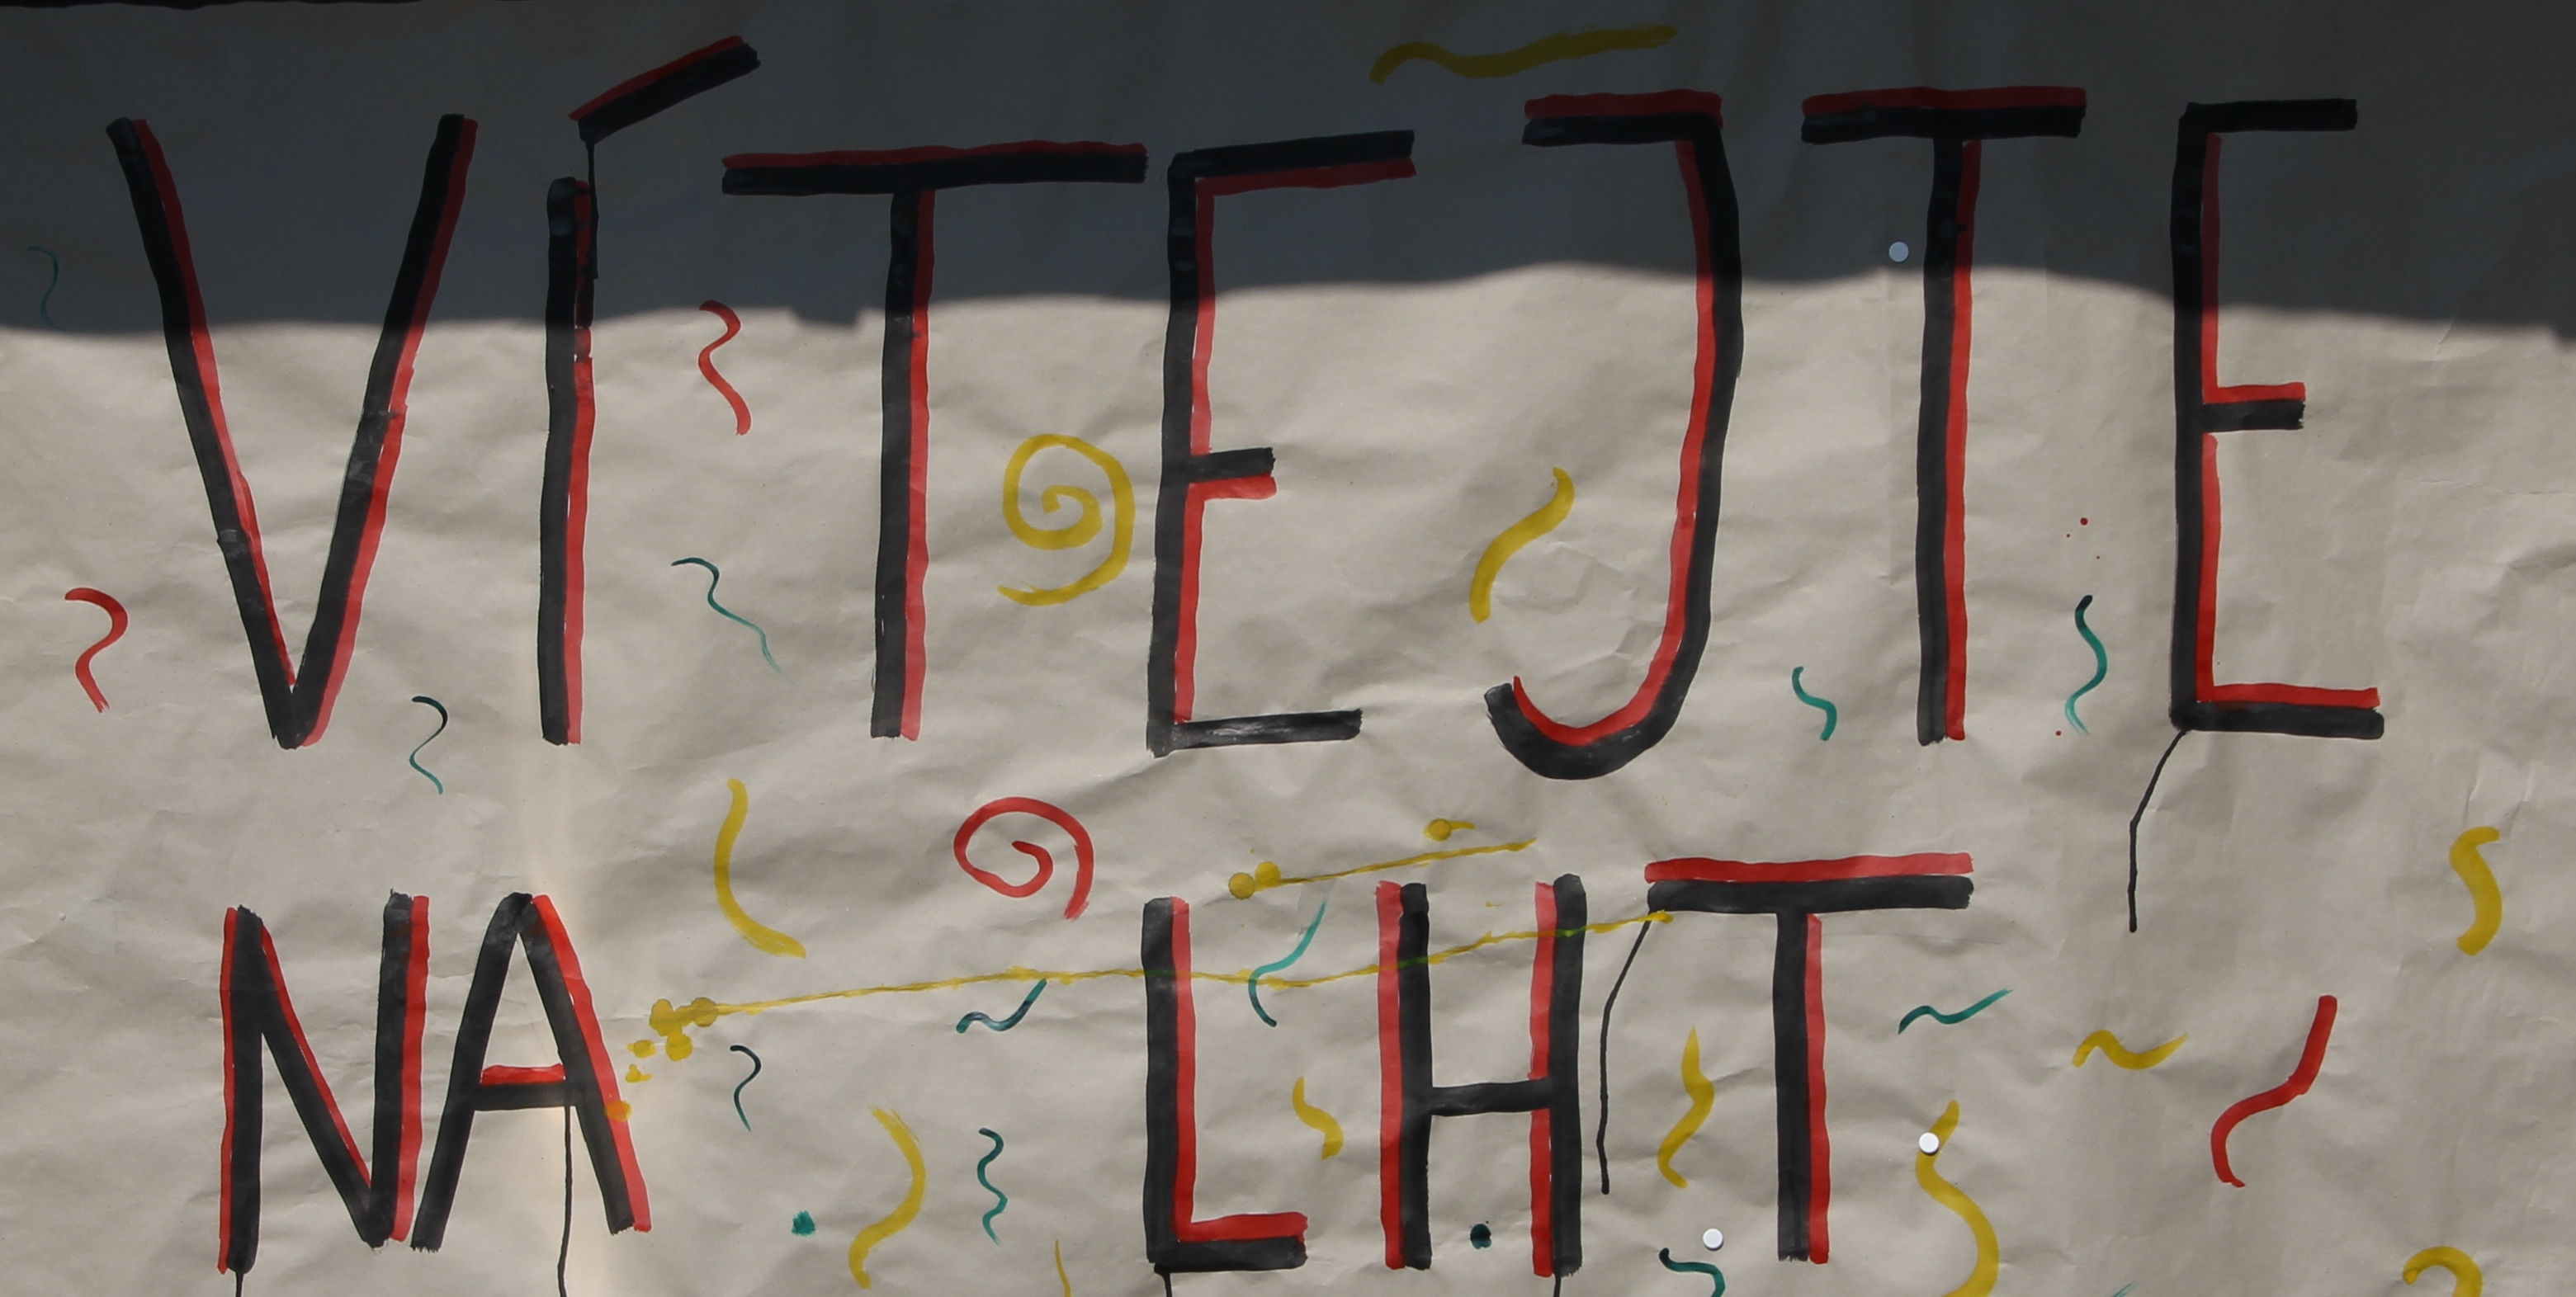 VÍTEJTE
NA LHT